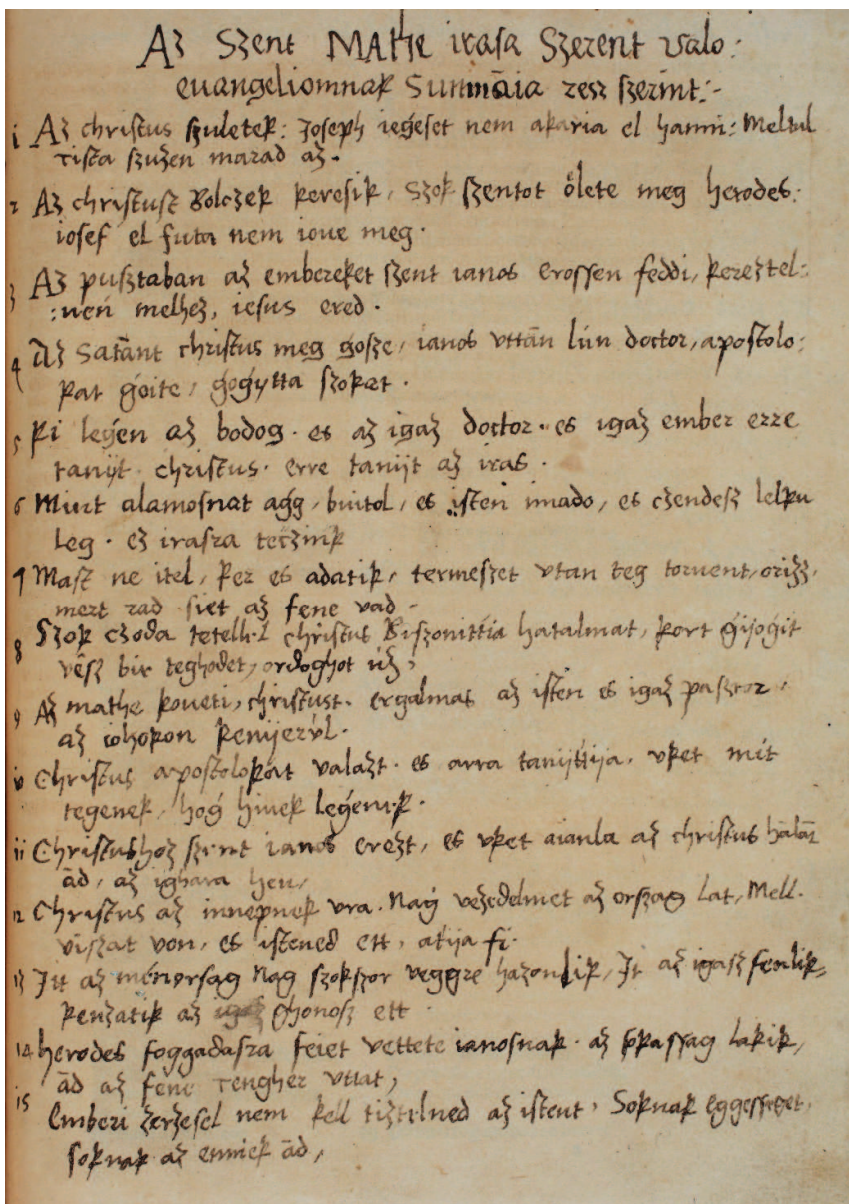 Az Szent MAthe irasa Szerent valo:
euangeliomnak Summāia resz szerint:-
1 Az christus szuletek: Joseph iegeset nem akaria el hanni: Meltul
tista szuzen marad az.
2 Az christust Bolczek keresik, Szok szentot ôlete meg herodes:
iosef el futa nem ioue meg.
3 Az pusztaban az embereket szent ianos erossen feddi, kereztel:
:uen melhez, iesus ered.
4 Az Satānt christus meg gosze, ianos vttān lún doctor, apostolo:
kat goite, gogytta szokat.
5 Ki legen az bodog. es az igaz doctor. es igaz ember erre
tanijt christus. erre tanijt az iras.
6 Mint alamosnat agg, buitol, es isten imado, es czendesz lelku
leg. ez irasra teczink
7 Masz ne itel, ker es adatik, termeszet vtan teg toruent, orizz,
mert rad siet az fene vad.
8 Szok czoda tetelh.l christus Biszonittia hatalmat, kort gijogit
vêsz bir teghodet, ordoghot úz,
9 Az mathe koueti, christust. ergalmas az isten es igaz pasztor,
az iohokon kenijerúl.
10 Christus apostolokat valazt. es arra tanijttija. vket mit
tegenek, hog hiuek legenek.
11 Christushoz szent ianos erezt, es vket aianla az christus halāt
ād, az ighara heu,
12 Christus az innepnek vra. Nag vezedelmet az orszag lat, Mell.
viszat von, es istened ett, atija fi.
13 Itt az menorsag Nag szokszor veggre hazonlik, It az igasz fenlik,
kenzatik az ghonosz ett.
14 herodes foggadasra feiet vettete ianosnak. az sokassag lakik,
ād az fene tengher vttat,
15 Emberi zerzesel nem kell tiztelned az istent, Soknak eggesseget,
soknak az enniek ād,